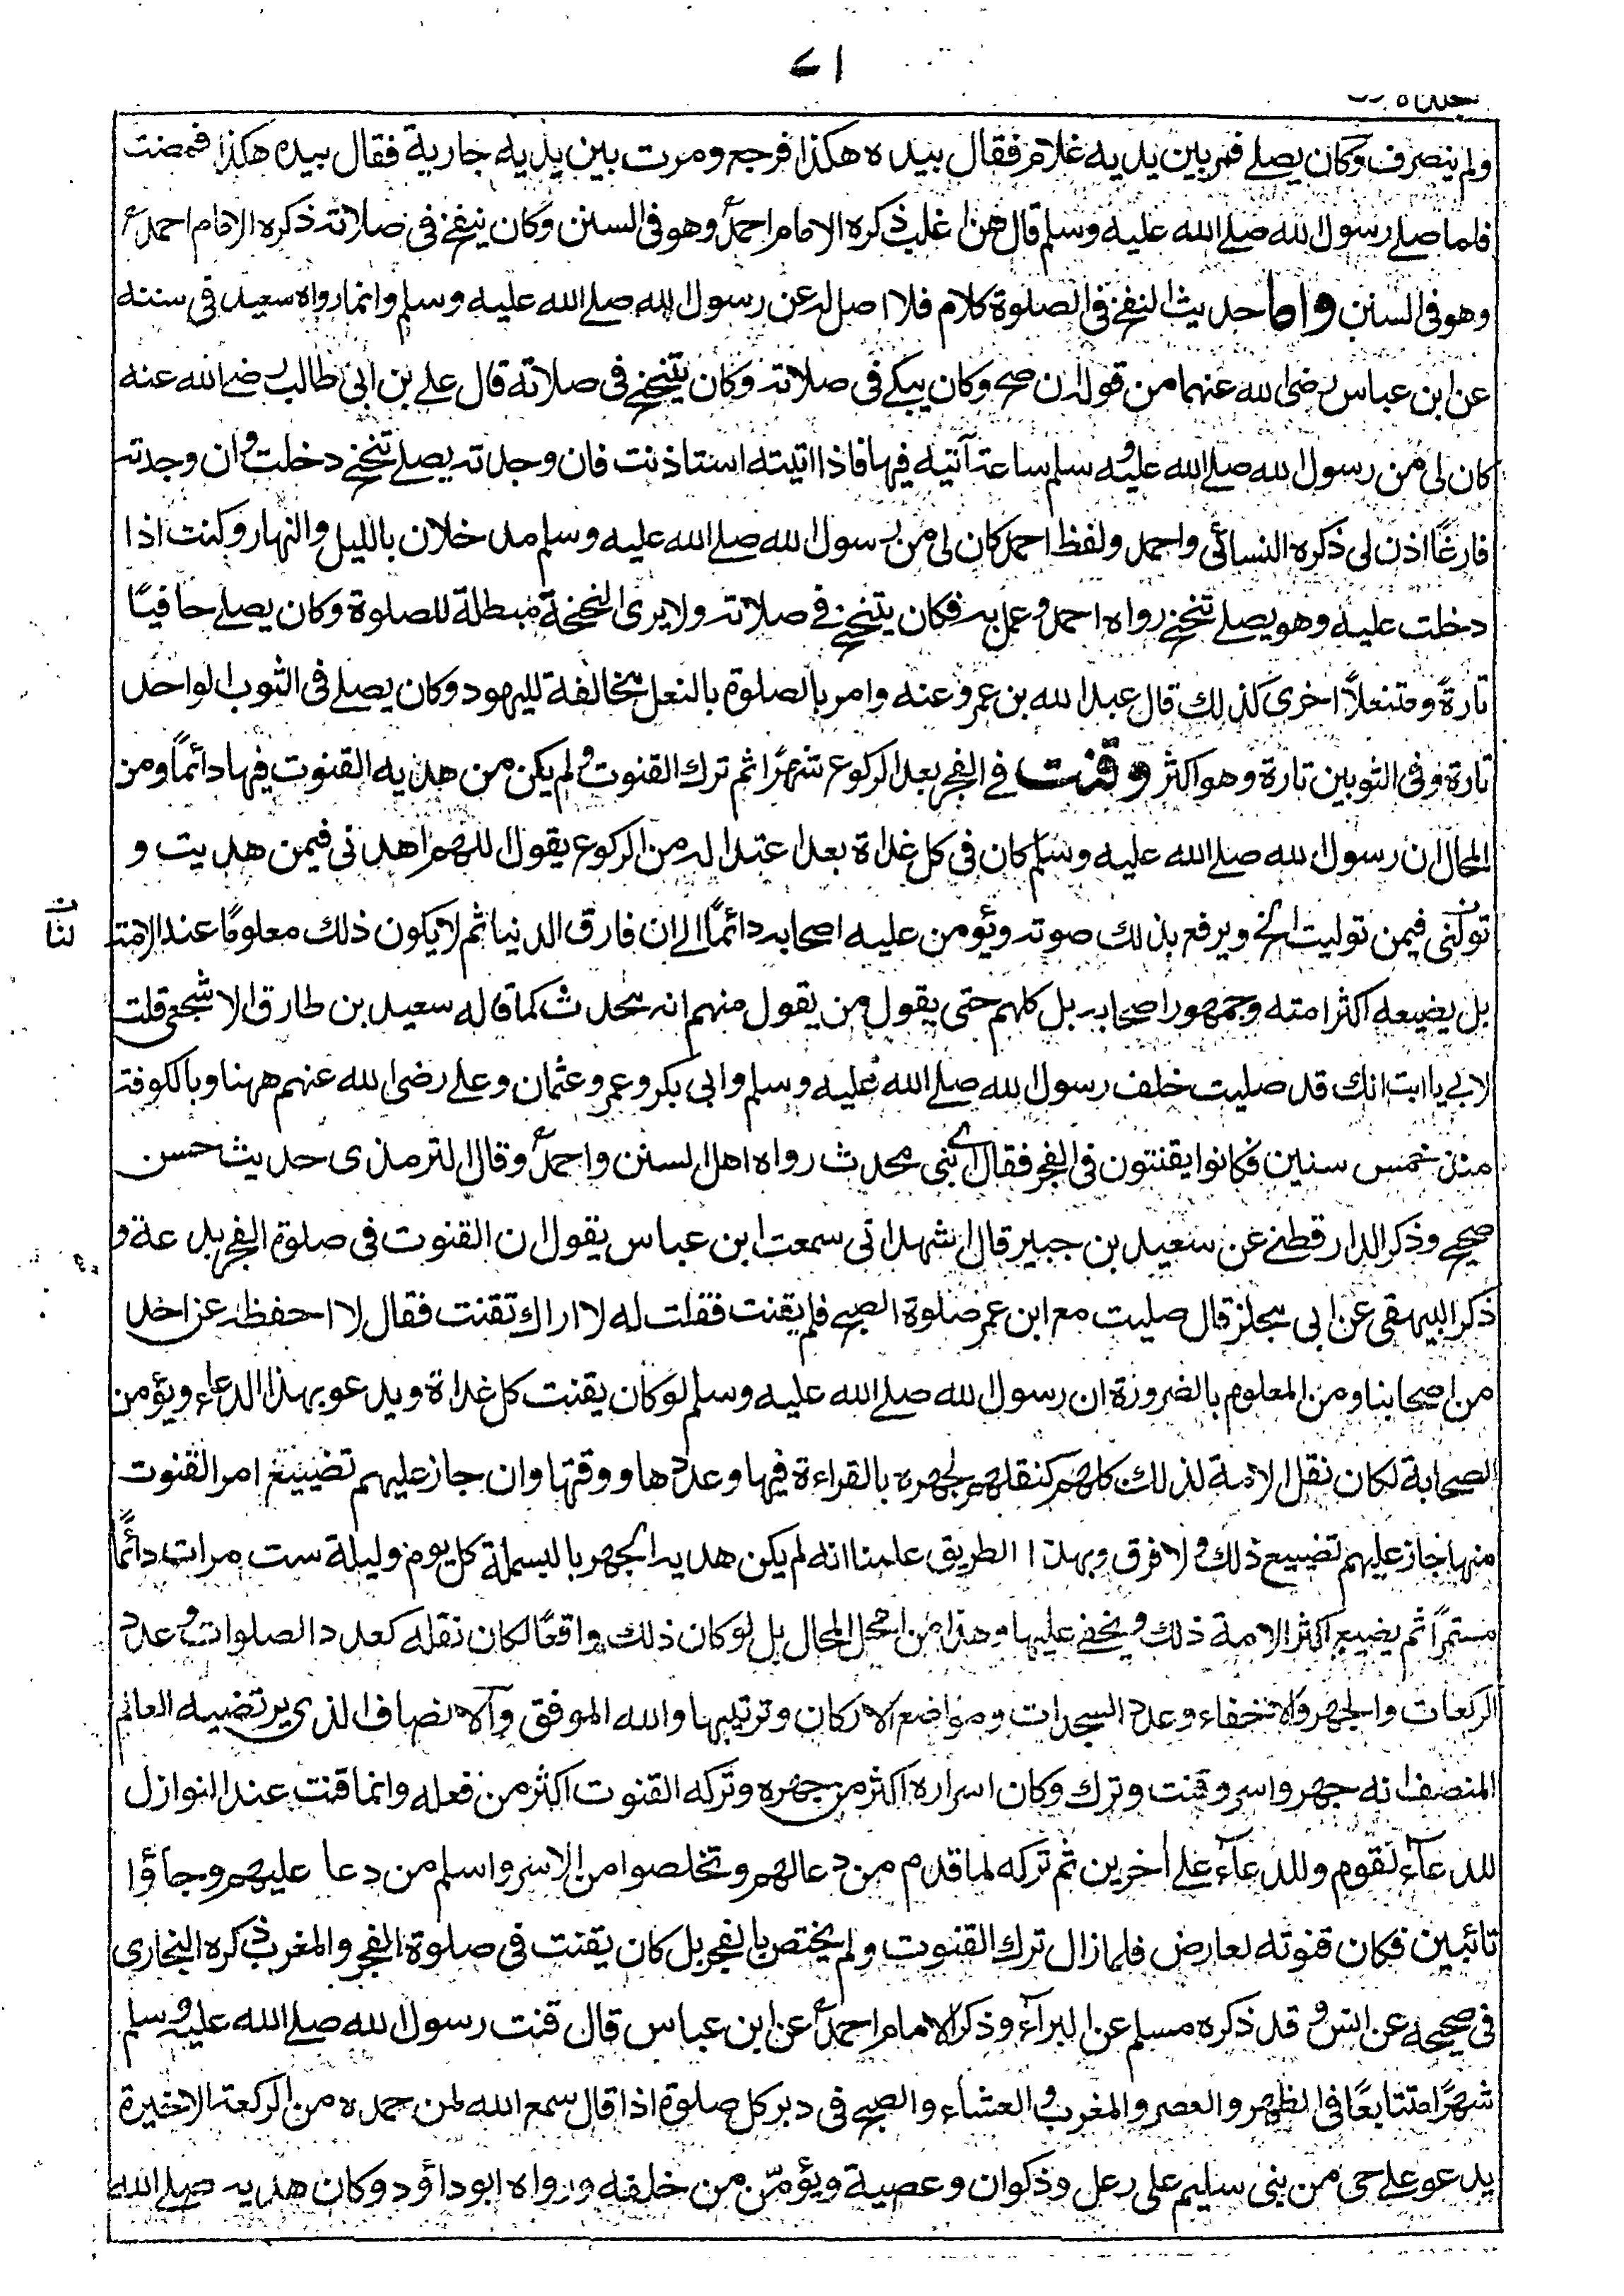 ٧١
ولم ينصرف وكان يصلے فمر بين يديه غلام فقال بيده هكذا فرجع ومرت بين يديه جارية فقال بيده هكذا فمضت
فلما صلے رسول الله صلے الله عليه وسلم قال هن اغلب ذكره الامام احمد وهو فى السنن وكان ينفخ فى صلاته ذكره الامام احمد
وهو فى السنن واما حديث النفخ فى الصلوة كلام فلا اصل له عن رسول الله صلے الله عليه وسلم وانما رواه سعيد فى سننه
عن ابن عباس رضى الله عنهما من قوله ان صح وكان يبكے فى صلاته وكان يتنحنح فى صلاته قال علے بن ابى طالب رضے الله عنه
كان لى من رسول الله صلے الله عليه وسلم ساعة آتيه فيها فاذا اتيته استاذنت فان وجدته يصلے تنحنح دخلت وان وجدته
فارغًا اذن لى ذكره النسائى واحمد ولفظ احمد كان لى من رسول الله صلے الله عليه وسلم مدخلان بالليل والنهار وكنت اذا
دخلت عليه وهو يصلے تنحنح رواه احمد وعمل به فكان يتنحنح فے صلاته ولا يرى النحنحة مبطلة للصلوة وكان يصلے حافيًا
تارةً ومتنعلاً اخرى كذلك قال عبد الله بن عمرو عنه وامر بالصلوة بالنعل مخالفة لليهود وكان يصلے فى الثوب الواحد
تارة وفى الثوبين تارة وهو اكثر وقنت فے الفجر بعد الركوع شهرًا ثم ترك القنوت ولم يكن من هديه القنوت فيها دائمًا ومن
المحال ان رسول الله صلے الله عليه وسلم كان فى كل غداة بعد اعتداله من الركوع يقول اللهم اهدنى فيمن هديت و
تولنى فيمن توليت الخ ويرفع بذلك صوته ويؤمن عليه اصحابه دائمًا الے ان فارق الدنيا ثم لا يكون ذلك معلومًا عند الامة
بل يضيعه اكثر امته وجمهور اصحابه بل كلهم حتى يقول من يقول منهم انه محدث كما قاله سعيد بن طارق الاشجعى قلت
لابے يا ابت انك قد صليت خلف رسول الله صلے الله عليه وسلم وابى بكر وعمر وعثمان وعلے رضى الله عنهم ههنا وبالكوفة
منذ خمس سنين فكانوا يقنتون فى الفجر فقال اى بنى محدث رواه اهل السنن واحمد وقال الترمذى حديث حسن
صحيح وذكر الدارقطنے عن سعيد بن جبير قال اشهد انى سمعت ابن عباس يقول ان القنوت فى صلوة الفجر بدعة و
ذكر البيهقى عن ابى مجلز قال صليت مع ابن عمر صلوة الصبح فلم يقنت فقلت له لا اراك تقنت فقال لا احفظه عن احد
من اصحابنا ومن المعلوم بالضرورة ان رسول الله صلے الله عليه وسلم لو كان يقنت كل غداة ويدعو بهذا الدعاء ويؤمن
الصحابة لكان نقل الامة لذلك كلهم كنقلهم لجهره بالقراءة فيها وعددها ووقتها وان جاز عليهم تضييع امر القنوت
منها جاز عليهم تضييع ذلك ولا فرق وبهذا الطريق علمنا انه لم يكن هديه الجهر بالبسملة كل يوم وليلة ست مرات دائمًا
مستمرًا ثم يضيع اكثر الامة ذلك ويخفے عليها وهذا من امحل المحال بل لو كان ذلك واقعًا لكان نقله كعدد الصلوات وعدد
الركعات والجهر والاخفاء وعدد السجدات ومواضع الاركان وترتيبها والله الموفق والانصاف الذى يرتضيه العالم
المنصف انه جهر واسر وقنت وترك وكان اسراره اكثر من جهره وتركه القنوت اكثر من فعله وانما قنت عند النوازل
للدعآء لقوم وللدعآء علے آخرين ثم تركه لما قدم من دعا لهم وتخلصوا من الاسر واسلم من دعا عليهم وجاؤا
تائبين فكان قنوته لعارض فلما زال ترك القنوت ولم يختص بالفجر بل كان يقنت فى صلوة الفجر والمغرب ذكره البخارى
فى صحيحه عن انس وقد ذكره مسلم عن البرآء وذكر الامام احمد عن ابن عباس قال قنت رسول الله صلے الله عليه وسلم
شهرًا متتابعًا فى الظهر والعصر والمغرب والعشاء والصبح فى دبر كل صلوة اذا قال سمع الله لمن حمده من الركعة الاخيرة
يدعو علے حى من بنى سليم على رعل وذكوان وعصية ويؤمّن من خلفه ورواه ابو داؤد وكان هديه صلے الله